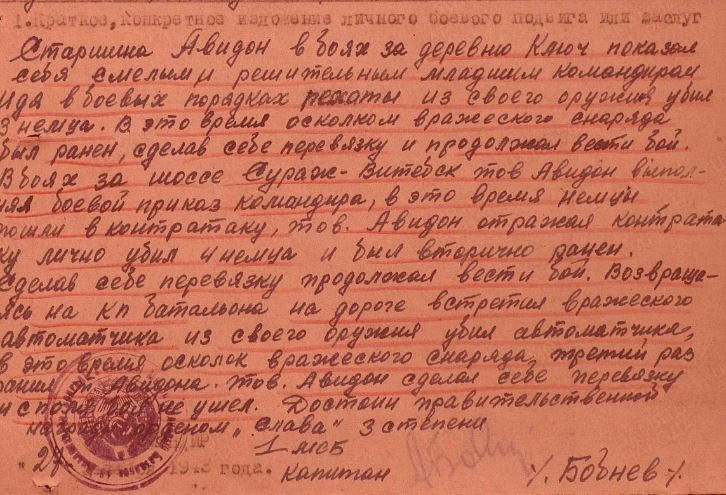 1.Краткое, конкретное изложение личного боевого подвига или заслуг
Старшина Авидон в боях за деревню Ключ показал
себя смелым и решительным младшим командиром
Идя в боевых порядках пехоты из своего оружия убил
3 немца. В это время осколком вражеского снаряда
был ранен, сделав себе перевязку и продолжал вести бой.
В боях за шоссе Сураж-Витебск тов Авидон выпол-
нял боевой приказ командира, в это время немцы
пошли в контратаку, тов. Авидон отражая контрата
ку лично убил 4 немца и был вторично ранен.
Сделав себе перевязку продолжал вести бой. Возвраща-
ясь на КП батальона на дороге встретил вражеского
автоматчика из своего оружия убил автоматчика,
в это время осколок вражеского снаряда, третий раз
ранил т. Авидона. тов. Авидон сделал себе перевязку
и с поля боя не ушел. Достоин правительственной
орденом „Слава" 3 степени
ДИР 1 МСБ
"27 1943 года. капитан /. Бобнев -/.